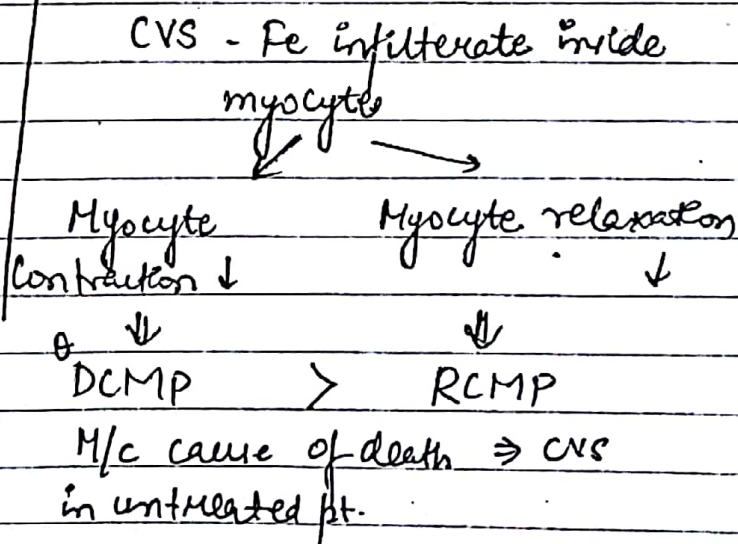 CVS - Fe infilterate inside
myocyte
↙ ↘
Myocyte Myocyte relaxation
Contraction ↓ ↓
⇓ ⇓
DCMP > RCMP
M/c cause of death ⇒ CVS
in untreated pt.